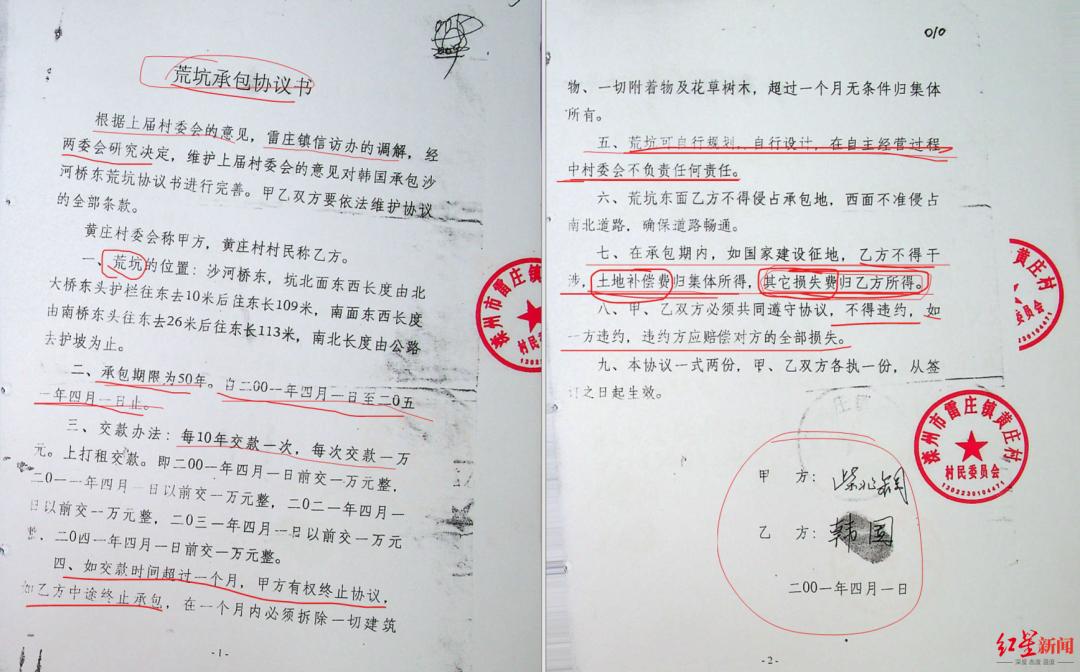 荒坑承包协议书
根据上届村委会的意见，雷庄镇信访办的调解，经
两委会研究决定，维护上届村委会的意见对韩国承包沙
河桥东荒坑协议书进行完善。甲乙双方要依法维护协议
的全部条款。
黄庄村委会称甲方，黄庄村村民称乙方。
一、荒坑的位置：沙河桥东，坑北面东西长度由北
大桥东头护栏往东去10米后往东长109米，南面东西长度
由南桥东头往东去26米后往东长113米，南北长度由公路
去护坡为止。
二、承包期限为50年。自二00一年四月一日至二0五
一年四月一日止。
三、交款办法：每10年交款一次，每次交款一万
元。上打租交款。即二00一年四月一日前交一万元整，
二0一一年四月一日以前交一万元整，二0二一年四月一
日以前交一万元整，二0三一年四月一日以前交一万元
整，二0四一年四月一日前交一万元整。
四、如交款时间超过一个月，甲方有权终止协议，
如乙方中途终止承包，在一个月内必须拆除一切建筑
-1-
滦州市雷庄镇
村民委
1302230
010
物、一切附着物及花草树木，超过一个月无条件归集体
所有。
五、荒坑可自行规划、自行设计，在自主经营过程
中村委会不负责任何责任。
六、荒坑东面乙方不得侵占承包地，西面不准侵占
南北道路，确保道路畅通。
七、在承包期内，如国家建设征地，乙方不得干
涉，土地补偿费归集体所得，其它损失费归乙方所得。
八、甲、乙双方必须共同遵守协议，不得违约，如
一方违约，违约方应赔偿对方的全部损失。
九、本协议一式两份，甲、乙双方各执一份，从签
订之日起生效。
黄庄村
员会
104471
滦州市雷庄镇黄庄村
村民委员会
1302230104471
甲 方：
乙 方：韩国
二00一年四月一日
-2-
红星新闻
深度 态度 温度